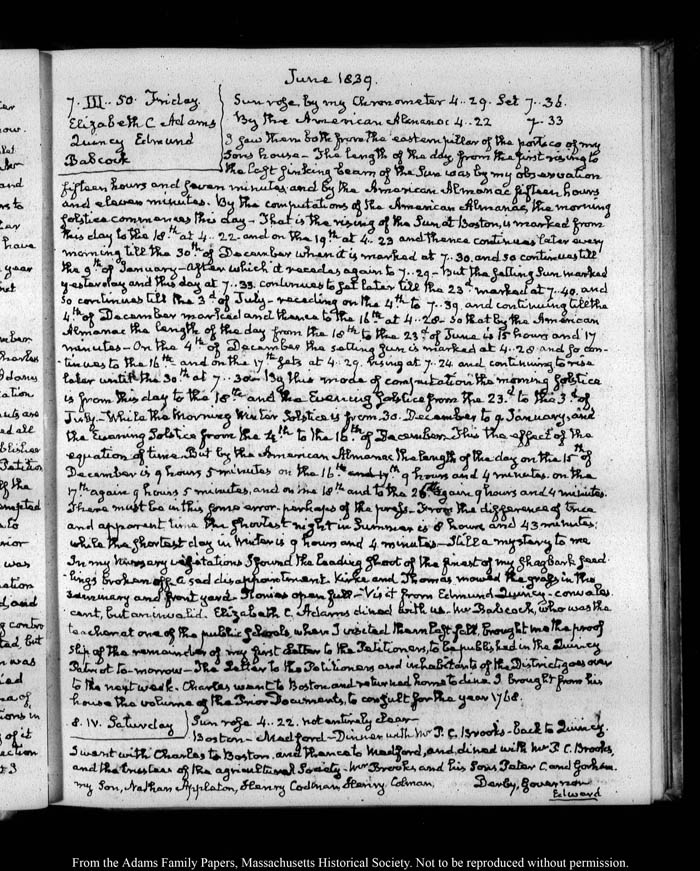 June 1839.
7. III.. 50. Friday. Sun rose, by my Chronometer 4.. 29. Set 7.. 36.
Elizabeth C Adams By the American Almanac 4.. 22 7.. 33
Quincy Edmund I saw them both from the eastern pillar of the portico of my
Babcock Sons house — The length of the day from the first rising to
the last sinking beam of the Sun was by my observation
fifteen hours and seven minutes, and by the American Almanac fifteen hours
and eleven minutes. By the computations of the American Almanac, the morning
solstice commences this day — That is the rising of the Sun at Boston, is marked from
this day to the 18.th at 4.. 22. and on the 19th at 4.. 23 and thence continues later every
morning till the 30th of December when it is marked at 7.. 30. and so continues till
the 9th of January — after which it recedes again to 7.. 29 — But the setting Sun marked
yesterday and this day at 7.. 33. continues to set later till the 23d marked at 7.. 40. and
so continues till the 3d of July — receding on the 4th to 7.. 39 and continuing till the
4th of December marked and thence to the 16th at 4.. 28 — so that by the American
Almanac the length of the day from the 18th to the 23d of June is 15 hours and 17
minutes — On the 4th of December the setting sun is marked at 4.. 28 and so con-
tinues to the 16th — and on the 17th sets at 4.. 29. rising at 7.. 24 and continuing to rise
later until the 30th at 7.. 30 — By this mode of computation the morning solstice
is from this day to the 18th and the Evening solstice from the 23d to the 3d of
July — While the Morning Winter Solstice is from 30. December to 9 January, and
the Evening Solstice from the 4th to the 16th of December. This the effect of the
equation of time. But by the American Almanac the length of the day on the 15th of
December is 9 hours 5 minutes on the 16th and 17th 9 hours and 4 minutes. on the
17th again 9 hours 5 minutes, and on the 18th and to the 26th again 9 hours and 4 minutes.
There must be in this some error. perhaps of the press. From the difference of true
and apparent time the shortest night in Summer is 8 hours and 43 minutes;
while the shortest day in Winter is 9 hours and 4 minutes — Still a mystery to me
In my Nursery visitations I found the leading shoot of the finest of my Shagbark seed-
lings broken off. a sad disappointment. Kirke and Thomas mowed the grass in the
and front yard. Peonies open full — Visit from Edmund Quincy — convales-
cent, but an invalid. Elizabeth C. Adams dined with us. Mr Babcock, who was the
teacher at one of the public schools, when I visited them last fall, brought me the proof
slip of the remainder of my first Letter to the Petitioners, to be published in the Quincy
Patriot to-morrow — The Letter to the Petitioners and inhabitants of the District goes over
to the next week. Charles went to Boston and returned home to dine. I brought from his
house the volume of the Prior Documents, to consult for the year 1768.
8. IV. Saturday Sun rose 4.. 22. not entirely clear —
Boston — Medford — Dinner with Mr P. C. Brooks — back to Quincy.
I went with Charles to Boston, and thence to Medford, and dined with Mr P. C. Brooks,
and the trustees of the agricultural Society — Mr Brooks and his Sons Peter C. and Gorham.
my Son, Nathan Appleton, Henry Codman, Henry Colman, Derby, Governor
Edward
From the Adams Family Papers, Massachusetts Historical Society. Not to be reproduced without permission.